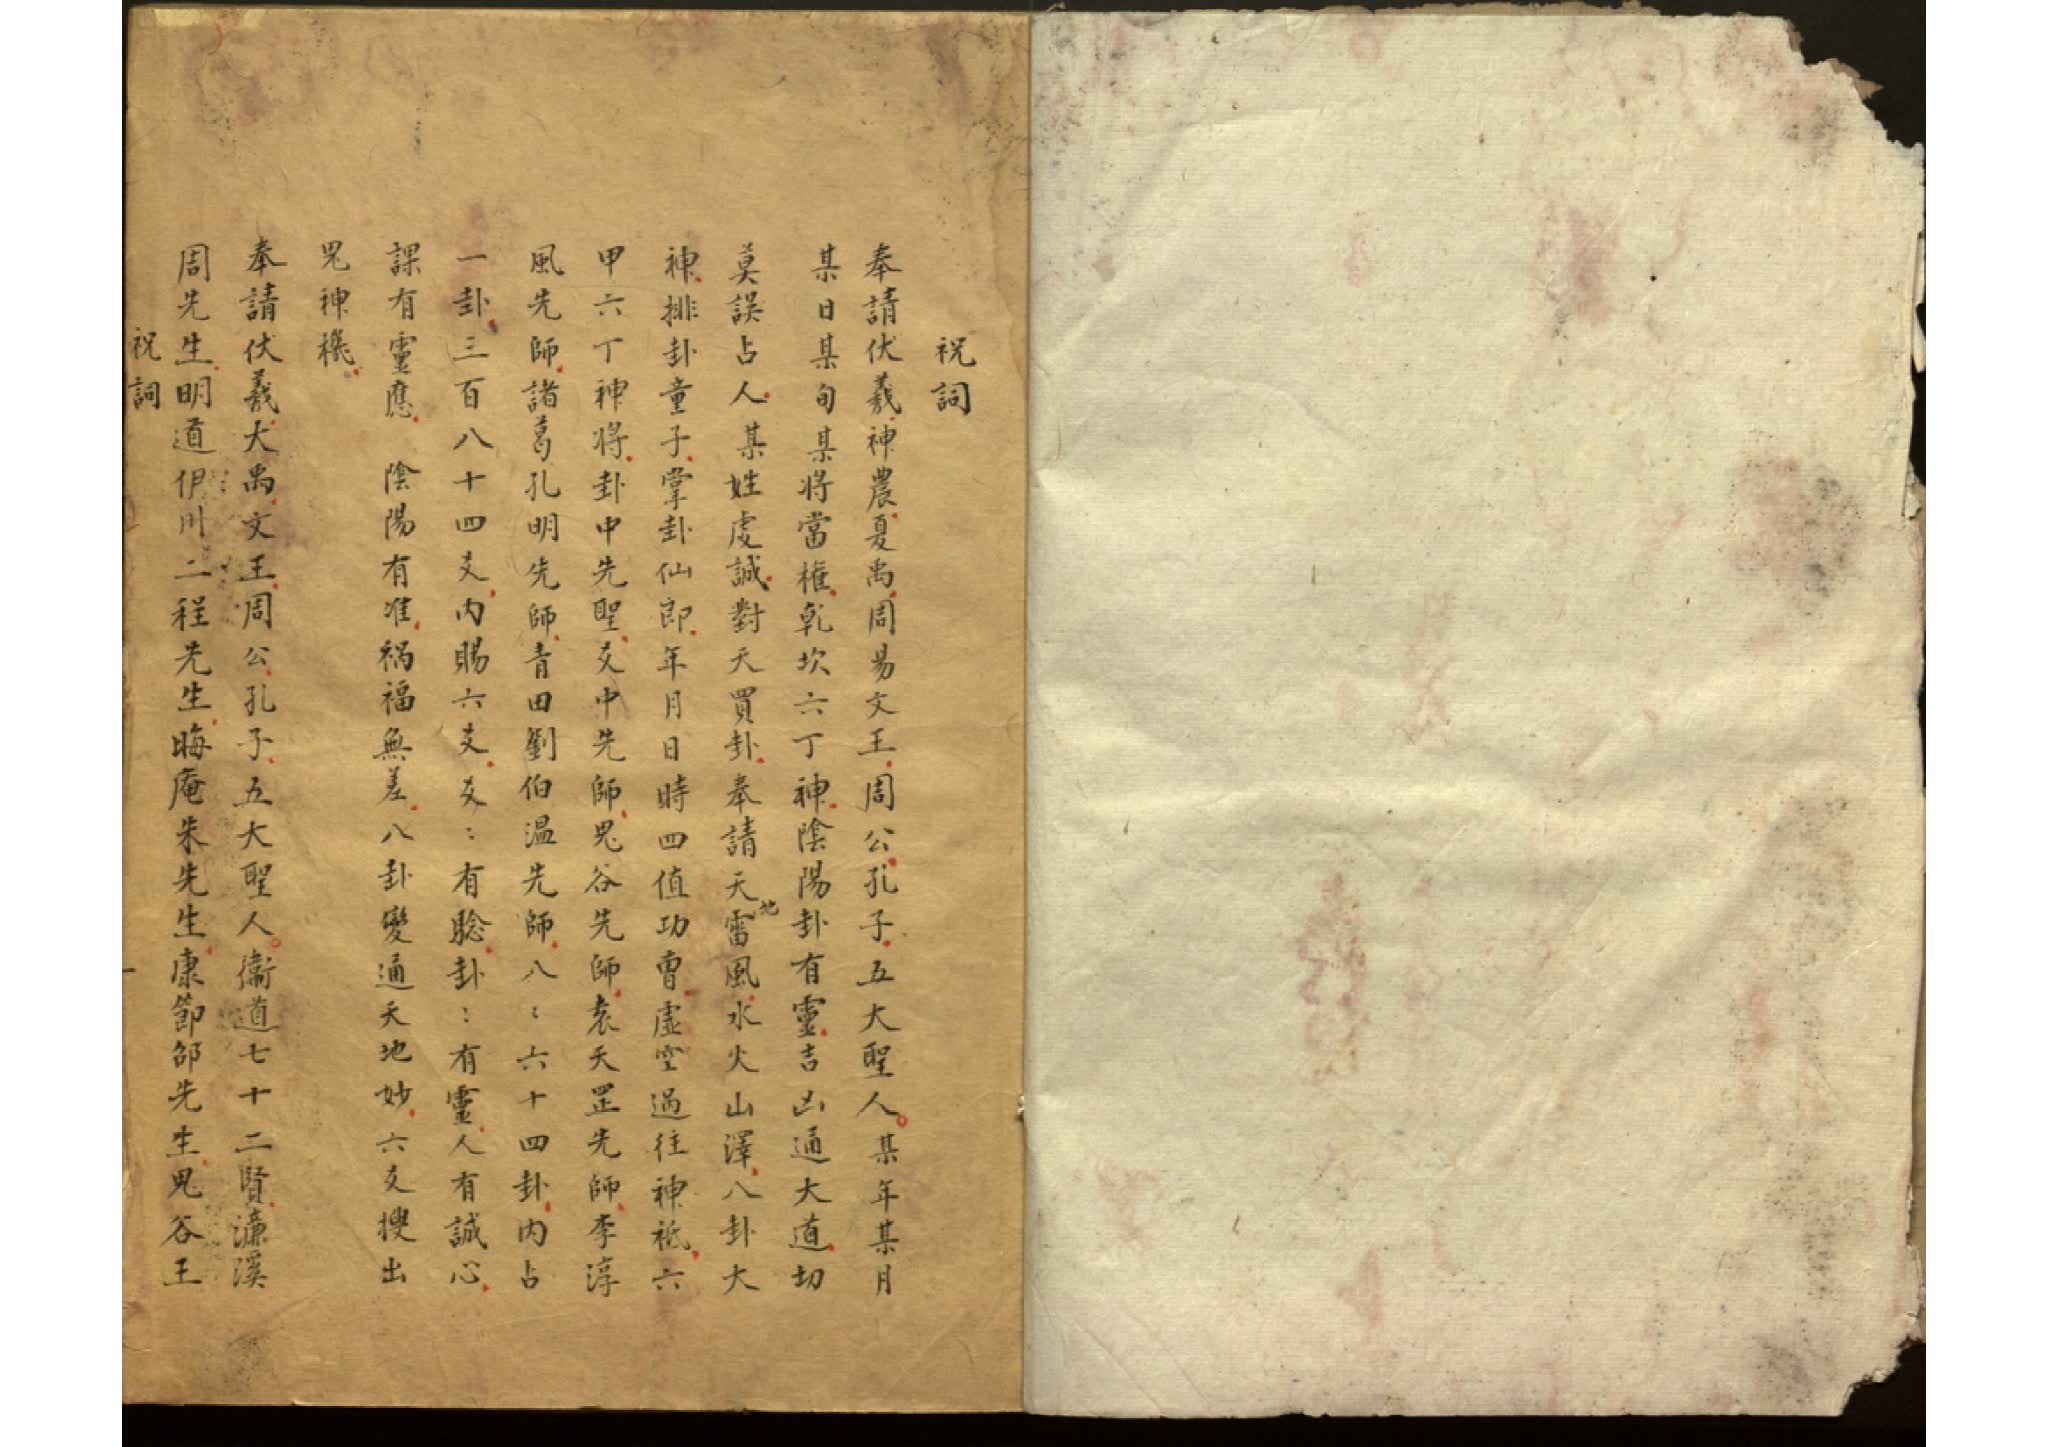 祝詞
奉請伏羲神農夏禹周易文王周公孔子五大聖人某年某月
某日某旬某將當權乾坎六丁神陰陽卦有靈吉凶通大道切
莫誤占人某姓虔誠對天買卦奉請天地雷風水火山澤八卦大
神排卦童子掌卦仙郎年月日時四值功曹虛空過往神祗六
甲六丁神將卦中先聖爻中先師鬼谷先師袁天罡先師李淳
風先師諸葛孔明先師青田劉伯溫先師八〻六十四卦內占
一卦三百八十四爻內賜六爻爻〻有驗卦〻有靈人有誠心
課有靈應 陰陽有准禍福無差八卦變通天地妙六爻搜出
鬼神機
奉請伏羲大禹文王周公孔子五大聖人衛道七十二賢濂溪
周先生明道伊川二程先生晦庵朱先生康節邵先生鬼谷王
祝詞
一